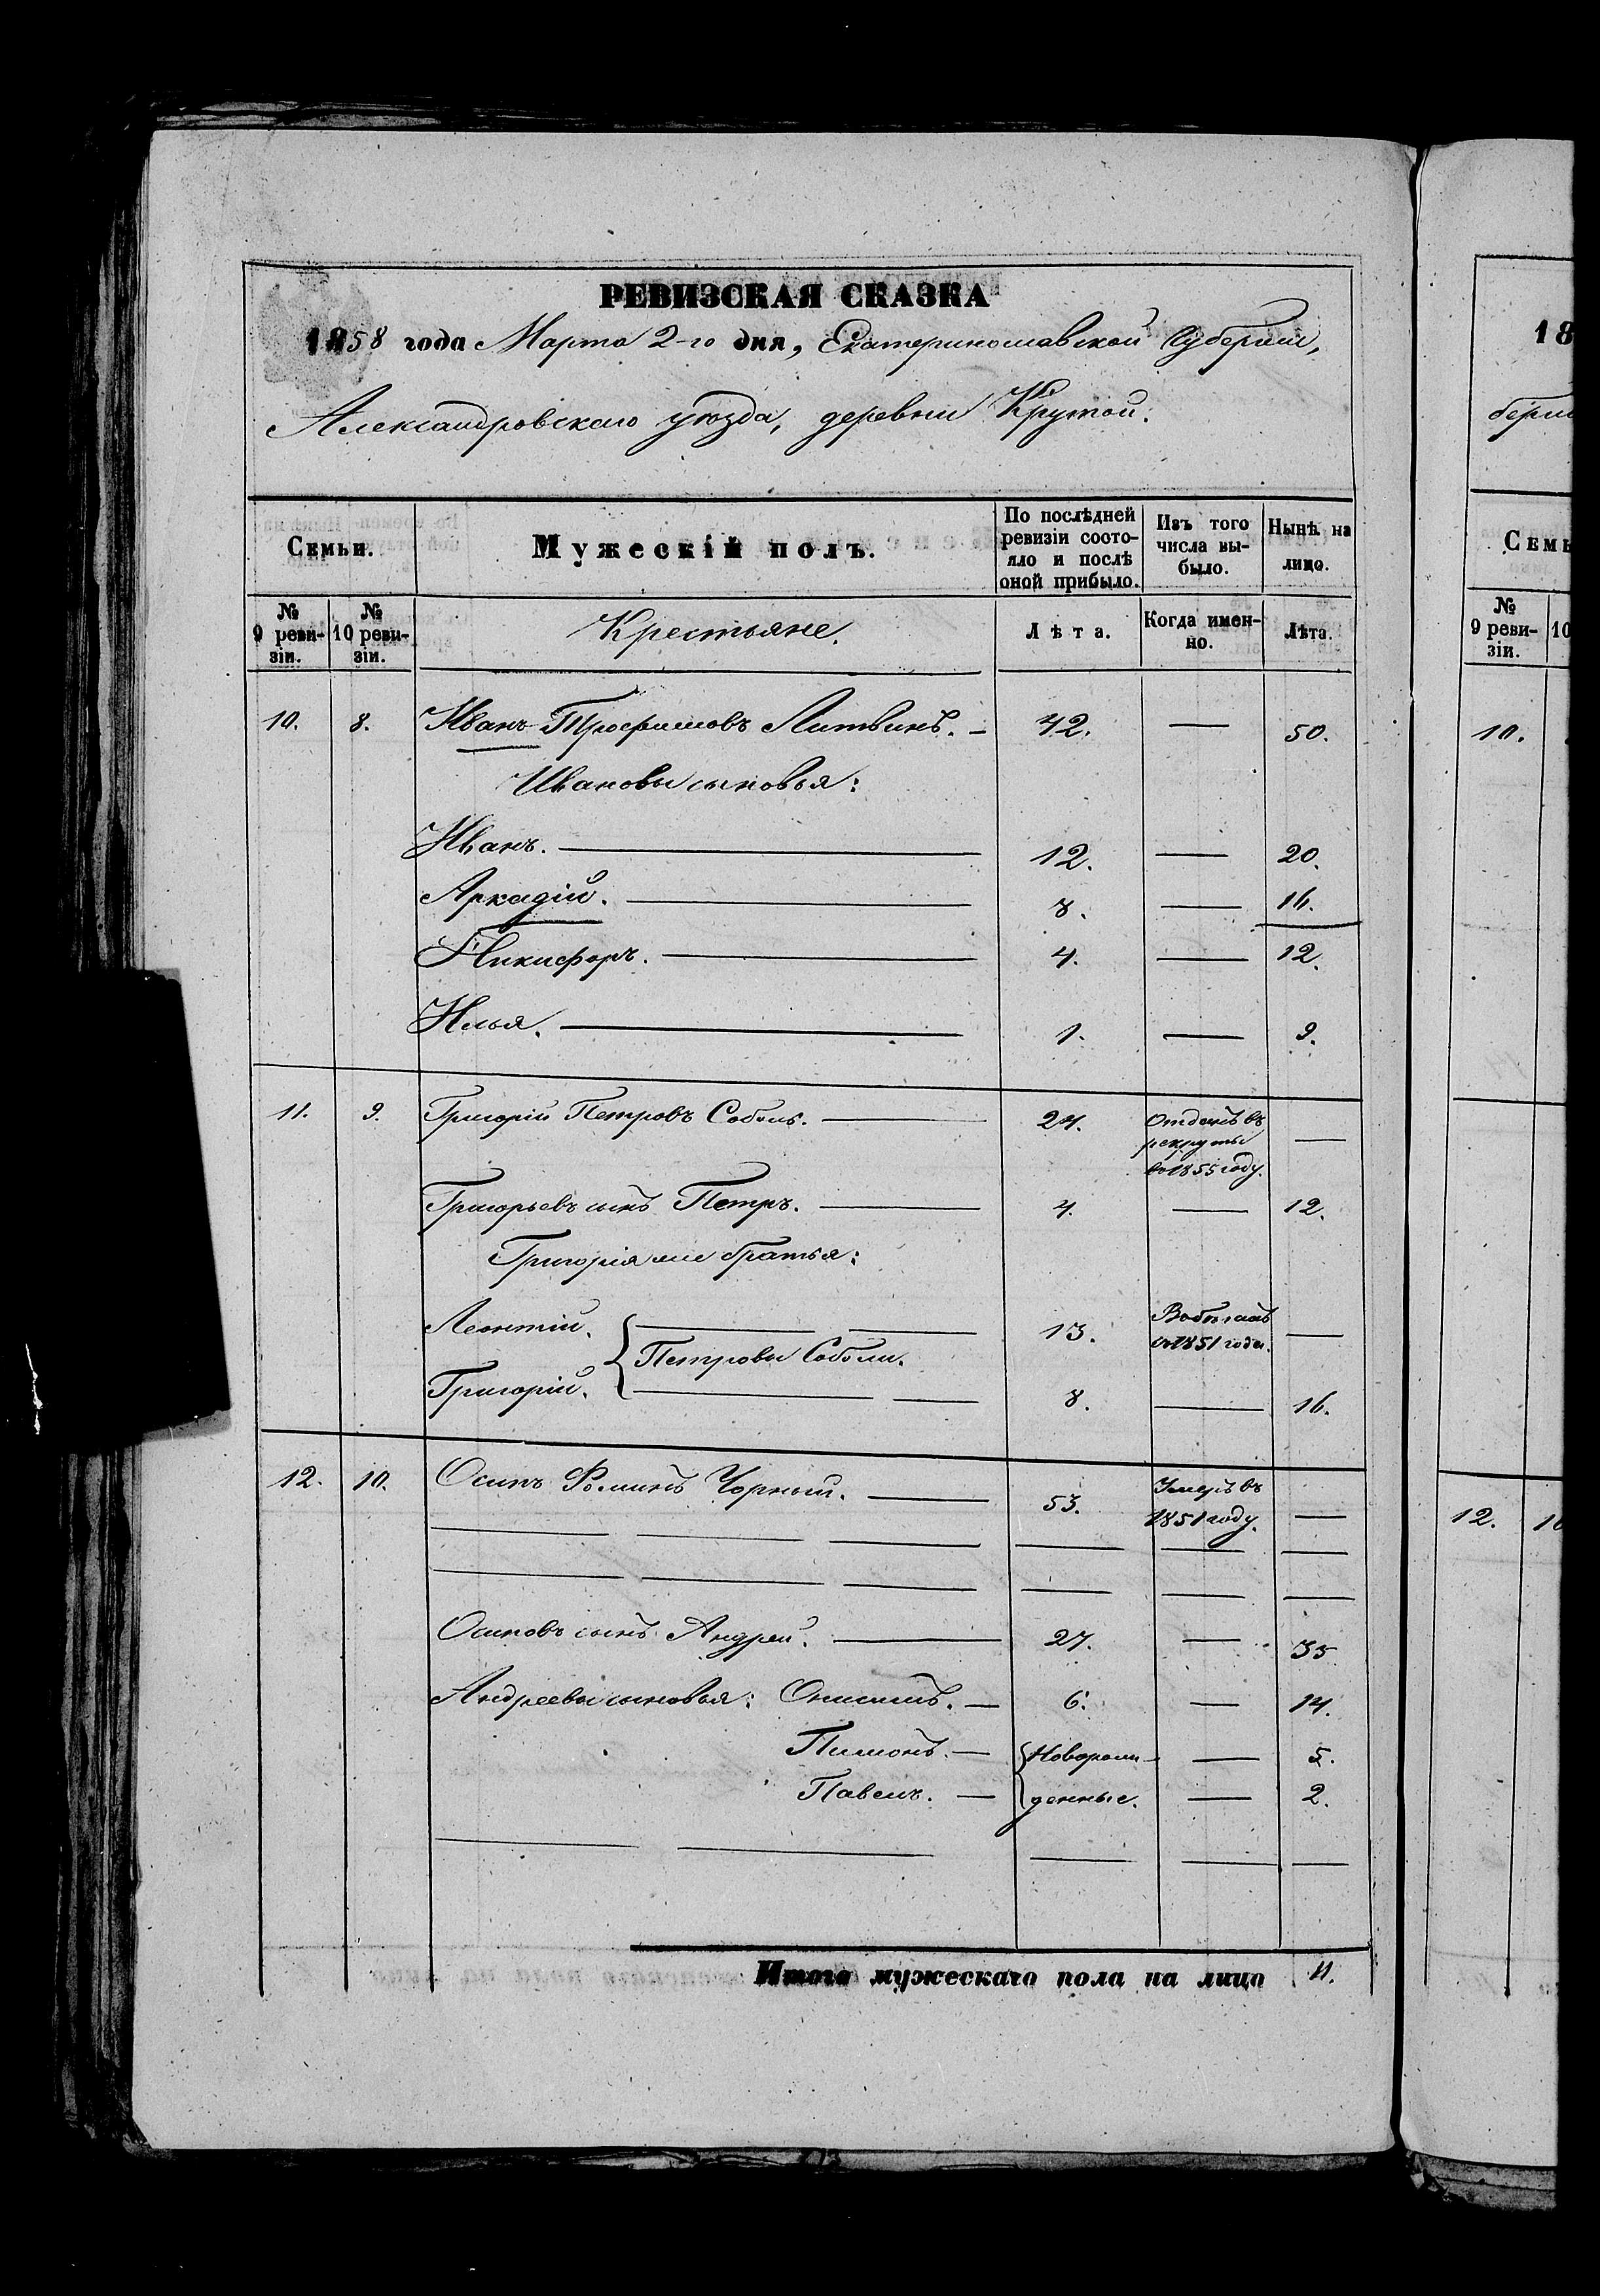 РЕВИЗСКАЯ СКАЗКА
1858 года Марта 2-го дня, Екатеринославской Губернии,
Александровскаго уѣзда, деревни Крутой.
Семьи.
Мужескій полъ.
По послѣдней
ревизіи состо-
яло и послѣ
оной прибыло.
Изъ того
числа вы-
было.
Нынѣ на
лицо.
№
9 реви-
зіи.
№
10 реви-
зіи.
Крестьяне.
Лѣта.
Когда имен-
но.
Лѣта.
10. 8. Иванъ Трофимовъ Литвинъ. 42. 50.
Ивановы сыновья:
Иванъ. 12. 20.
Аркадій. 8. 16.
Никифоръ. 4. 12.
Илья. 1. 9.
11. 9. Григорій Петровъ Соболь. 24. Отданъ въ
рекруты
въ 1855 году.
Григорьевъ сынъ Петръ. 4. 12.
Григорія братья:
Леонтій. 13. въ 1851 году.
Петровы Соболи.
Григорій. 8. 16.
12. 10. Осипъ Фоминъ Чорный. 53. Умеръ въ
1851 году.
Осиповъ сынъ Андрей. 27. 35
Андреевы сыновья: Онисимъ. 6. 14.
Пимонъ. Новорож- 5.
Павелъ. денные. 2.
Итого мужескаго пола на лицо 11.
18
берні
Семь
№
9 реви-
зіи.
10
10.
12. 10